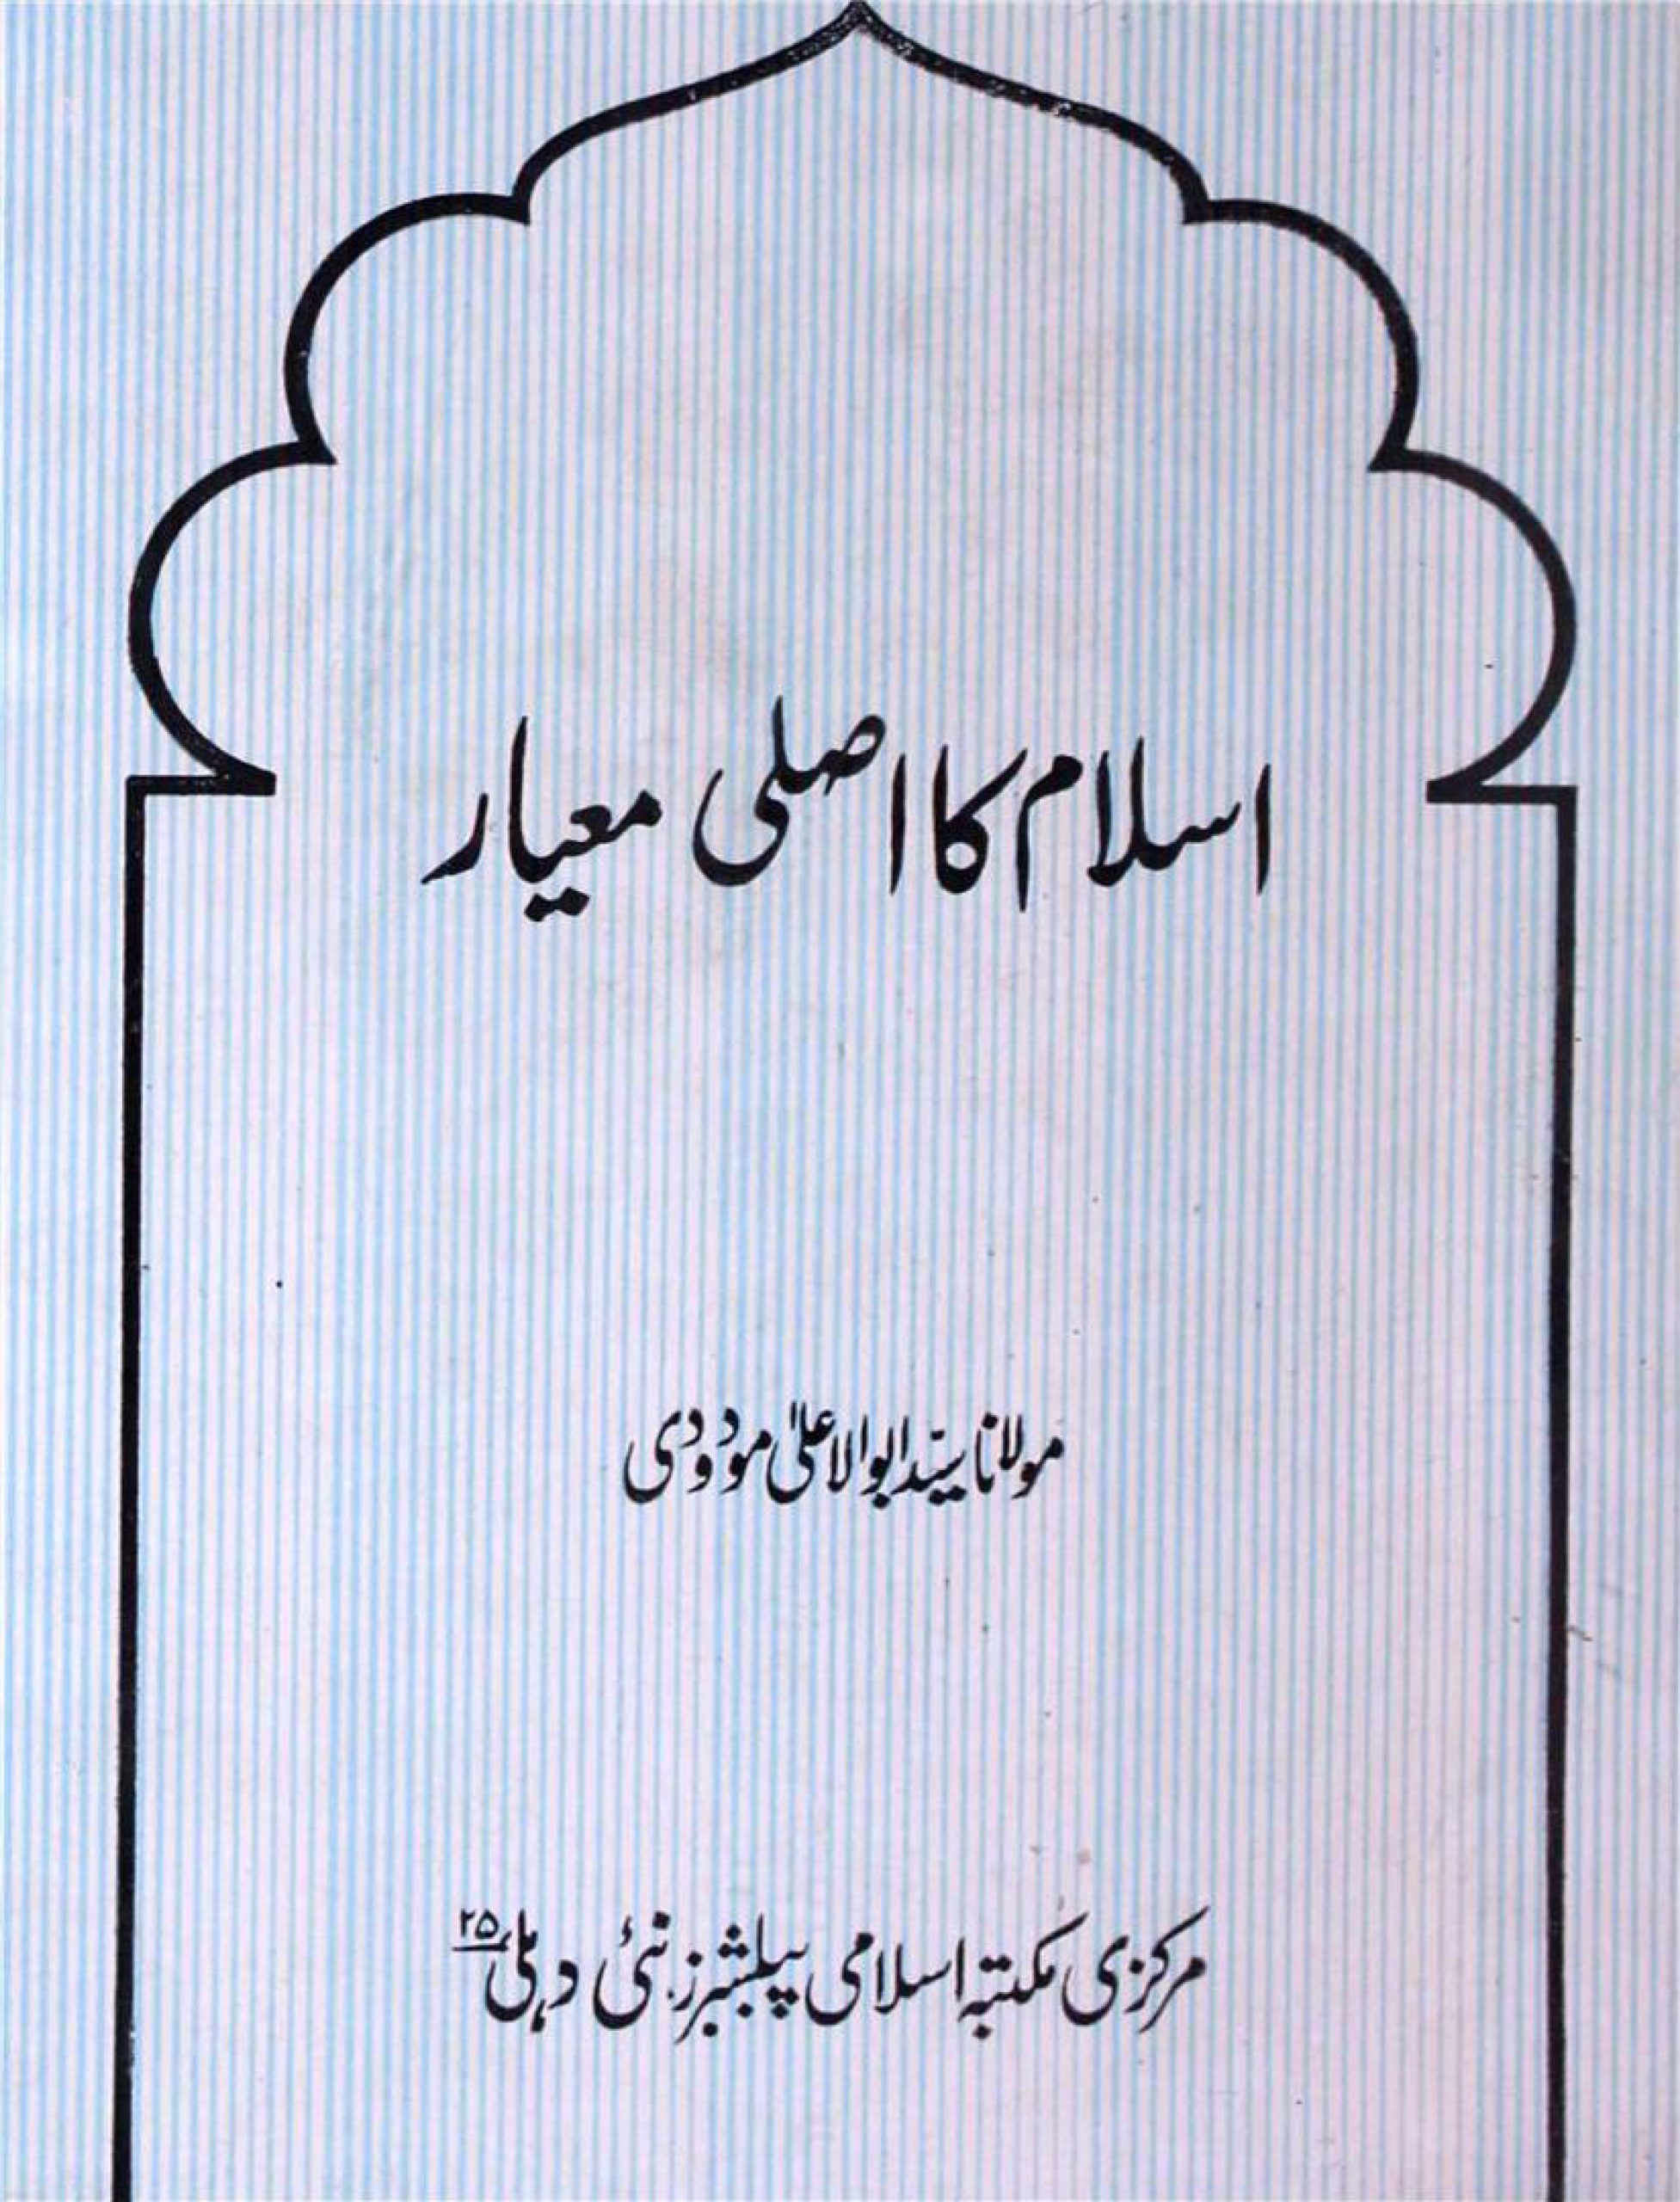 اسلام کا اصلی معیار
مولانا سیّد ابوالاعلیٰ مودودی
مرکزی مکتبہ اسلامی پبلشرز، نئی دہلی ۲۵